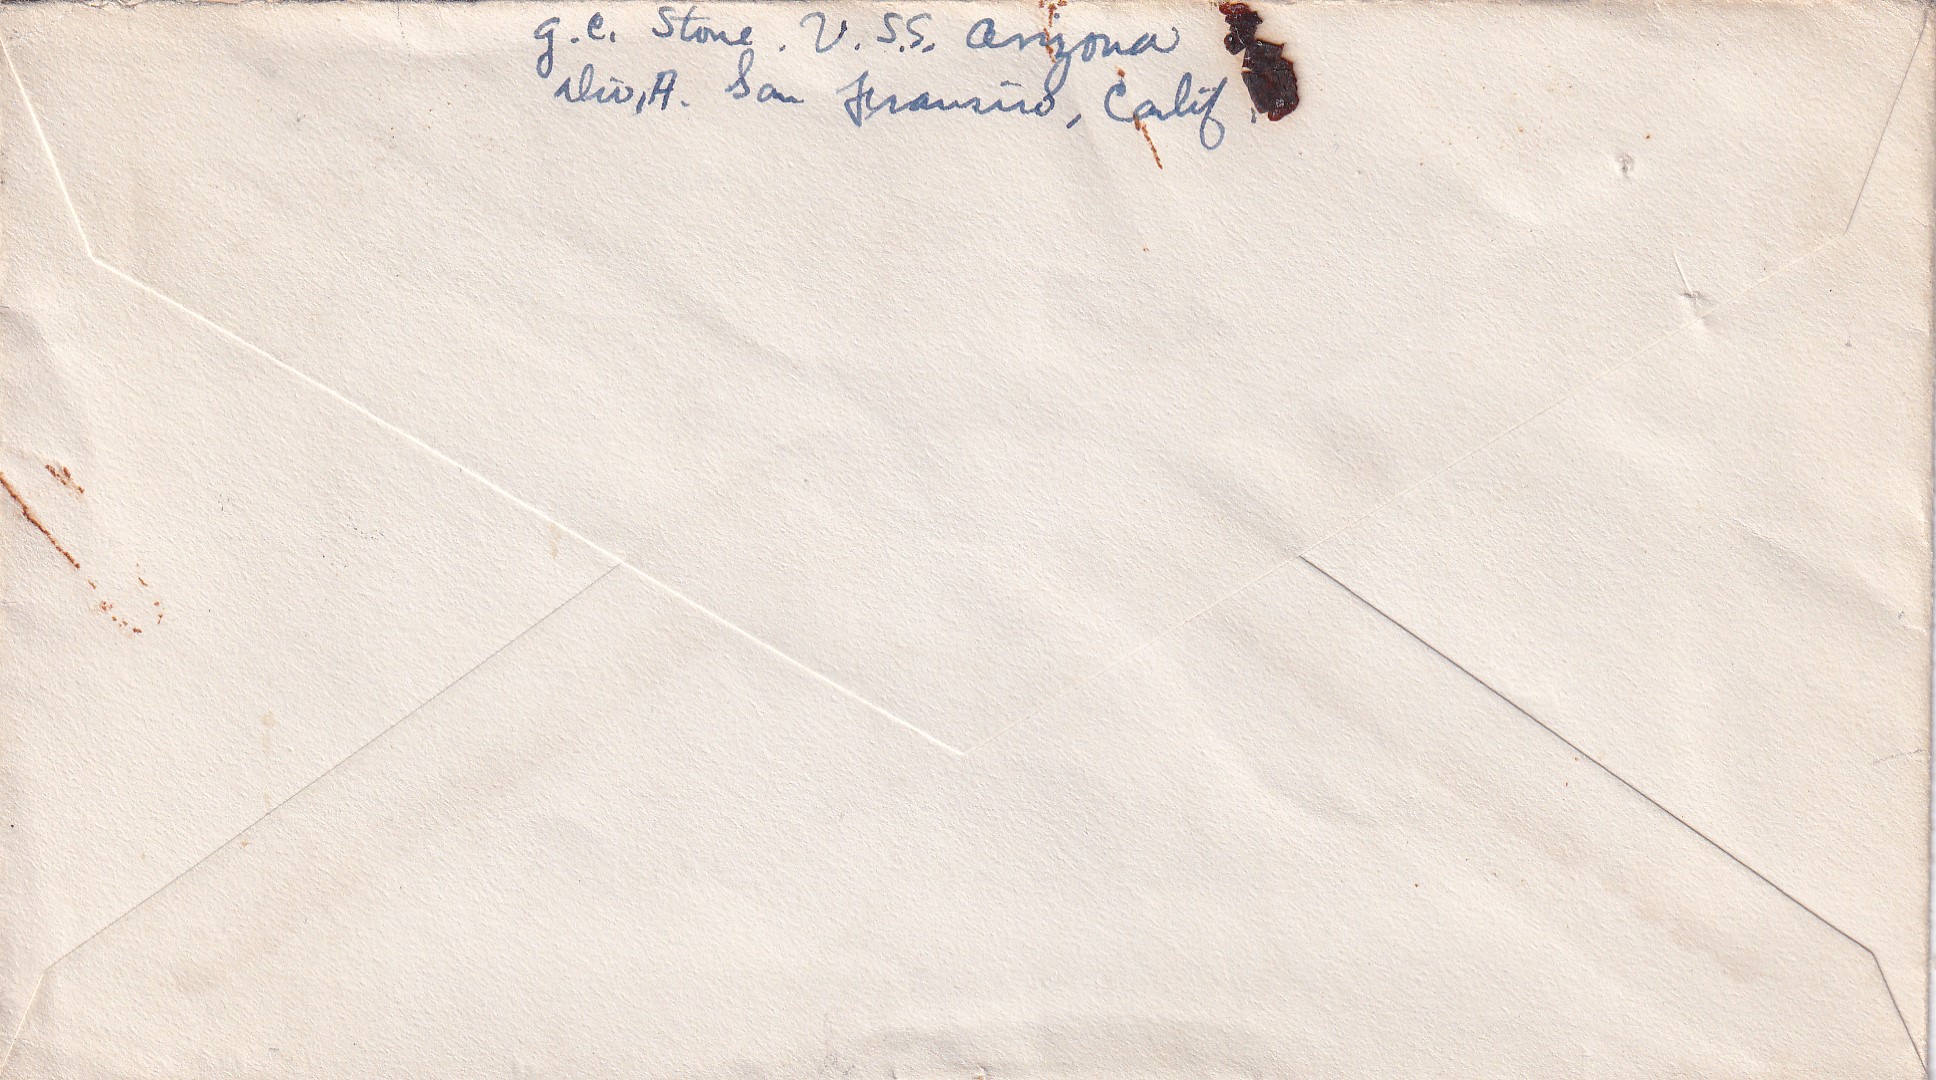 G. C. Stone. U. S. S. Arizona
Div, A. San Fransisco, Calif.